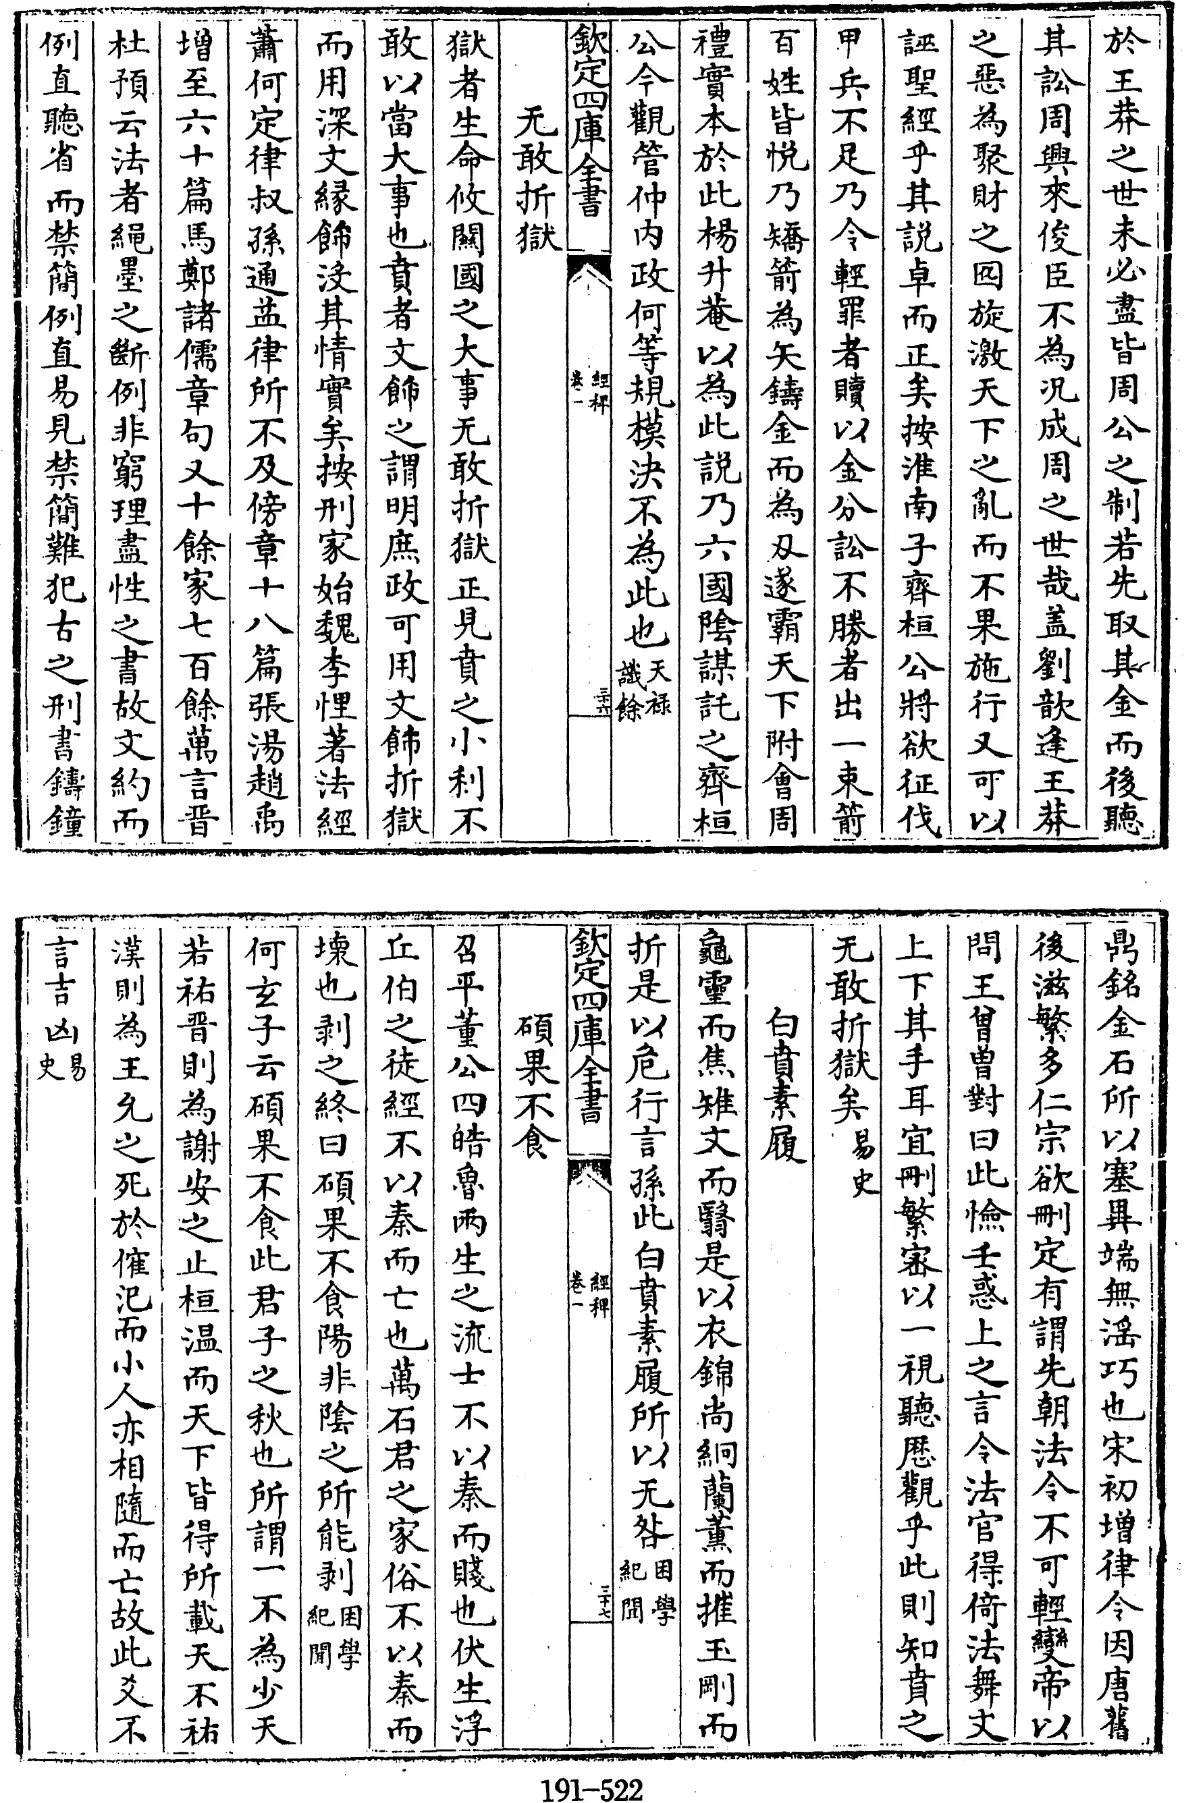 於王莽之世未必盡皆周公之制若先取其金而後聽
其訟周興來俊臣不為況成周之世哉盖劉歆逢王莽
之惡為聚財之囮旋激天下之亂而不果施行又可以
誣聖經乎其説卓而正矣按淮南子齊桓公將欲征伐
甲兵不足乃令輕罪者贖以金分訟不勝者出一束箭
百姓皆悦乃矯箭為矢鑄金而為刄遂霸天下附會周
禮實本於此楊升菴以為此説乃六國陰謀託之齊桓
公今觀管仲内政何等規模決不為此也天禄
識餘
欽定四庫全書
經稗
卷一
三十六
无敢折獄
獄者生命攸關國之大事无敢折獄正見賁之小利不
敢以當大事也賁者文飾之謂明庶政可用文飾折獄
而用深文縁飾沒其情實矣按刑家始魏李悝著法經
蕭何定律叔孫通益律所不及傍章十八篇張湯趙禹
增至六十篇馬鄭諸儒章句又十餘家七百餘萬言晋
杜預云法者繩墨之斷例非窮理盡性之書故文約而
例直聽省而禁簡例直易見禁簡難犯古之刑書鑄鐘
鼎銘金石所以塞異端無滛巧也宋初增律令因唐舊
後滋繁多仁宗欲刪定有謂先朝法令不可輕變帝以
問王曾曾對曰此憸壬惑上之言令法官得倚法舞文
上下其手耳宜刪繁審以一視聽厯觀乎此則知賁之
无敢折獄矣易史
白賁素履
龜靈而焦雉文而翳是以衣錦尚絅蘭薰而摧玉剛而
折是以危行言孫此白賁素履所以无咎困學
紀聞
欽定四庫全書
經稗
卷一
三十七
碩果不食
召平董公四皓魯兩生之流士不以秦而賤也伏生浮
丘伯之徒經不以秦而亡也萬石君之家俗不以秦而
壊也剥之終曰碩果不食陽非陰之所能剥困學
紀聞
何玄子云碩果不食此君子之秋也所謂一不為少天
若祐晋則為謝安之止桓温而天下皆得所載天不祐
漢則為王允之死於傕汜而小人亦相隨而亡故此爻不
言吉凶易
史
191-522